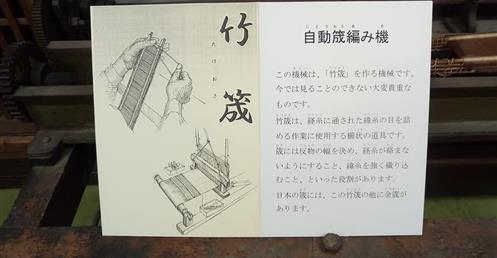 竹筬
たけおさ
自動筬編み機
じどうおさあみき
この機械は、「竹筬」を作る機械です。
今では見ることのできない大変貴重な
ものです。
竹筬は、経糸に通された緯糸の目を詰
める作業に使用する櫛状の道具です。
筬には反物の幅を決め、経糸が絡まな
いようにすること、緯糸を強く織り込
むこと、といった役割があります。
日本の筬には、この竹筬の他に金筬が
あります。